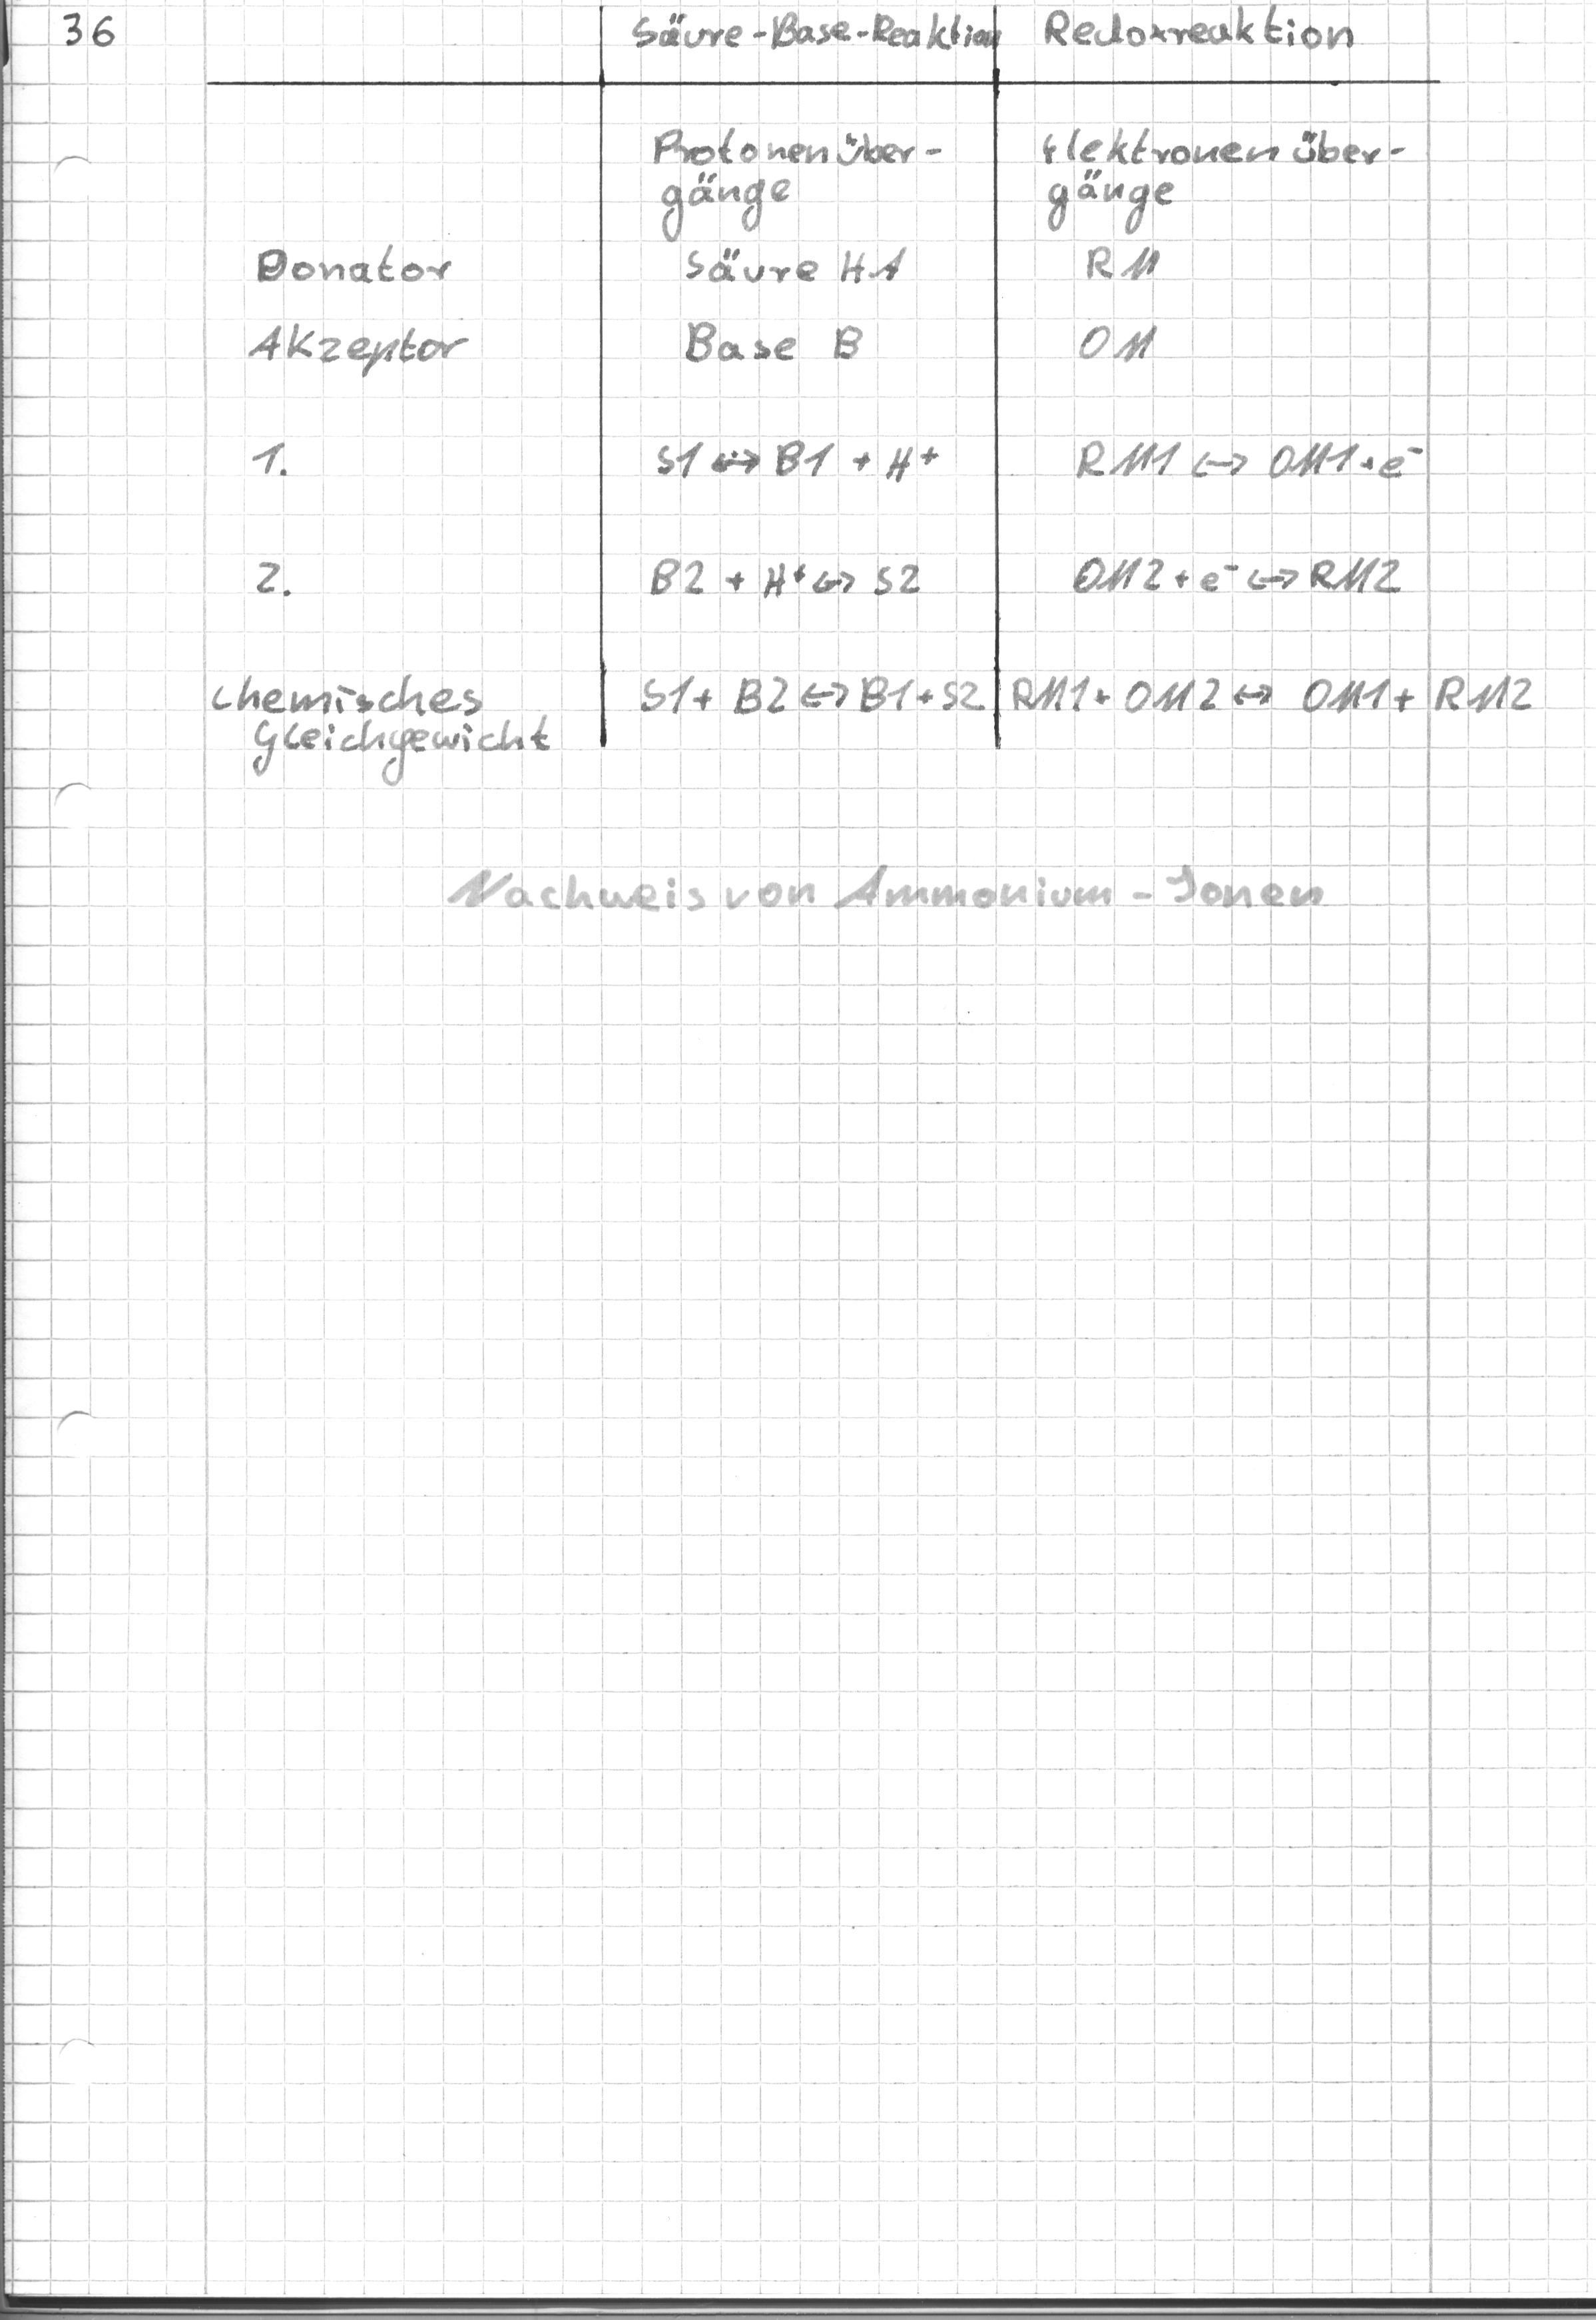 36 Säure-Base-Reaktion Redoxreaktion
Protonenüber- Elektronenüber-
gänge gänge
Donator Säure HA RM
Akzeptor Base B OM
1. S1 ↔ B1 + H⁺ RM1 ↔ OM1 + e⁻
2. B2 + H⁺ ↔ S2 OM2 + e⁻ ↔ RM2
chemisches S1 + B2 ↔ B1 + S2 RM1 + OM2 ↔ OM1 + RM2
Gleichgewicht
Nachweis von Ammonium - Ionen